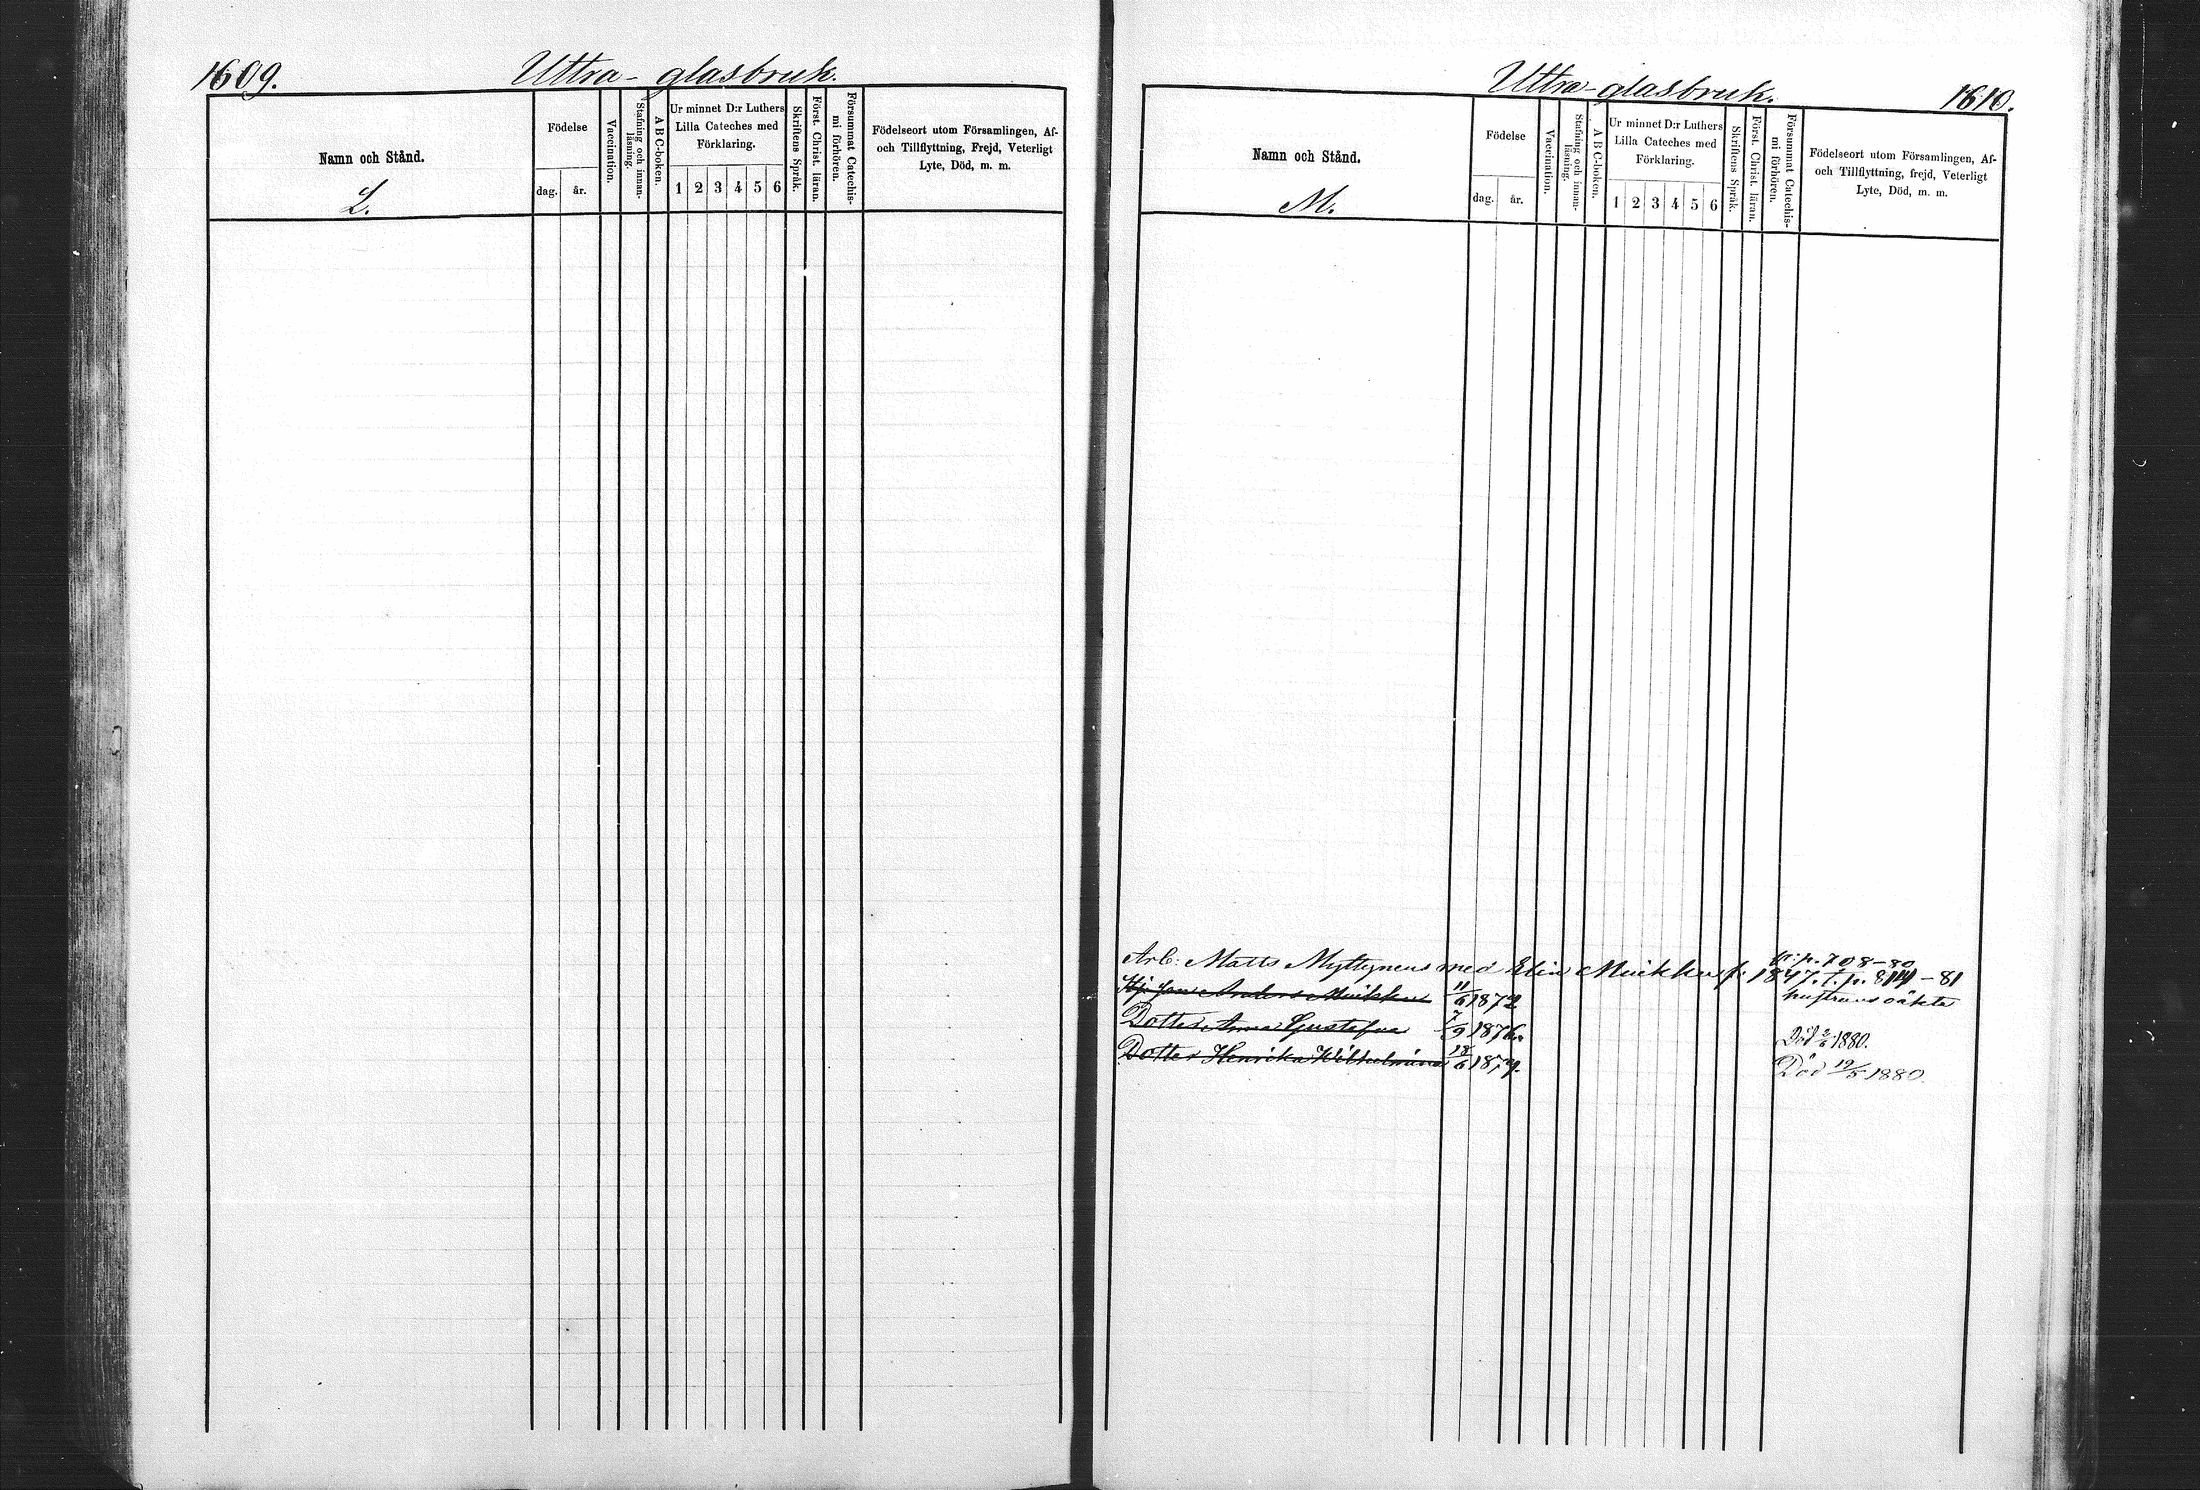 1609.
Uttra-glasbruk.
Namn och Stånd.
L.
Födelse
dag. år.
Vaccination.
Stafning och innan-
läsning.
A B C-boken.
Ur minnet D:r Luthers
Lilla Cateches med
Förklaring.
1 2 3 4 5 6
Skriftens Språk.
Först. Christ. läran.
Försummat Catechis-
mi förhören.
Födelseort utom Församlingen, Af-
och Tillflyttning, Frejd, Veterligt
Lyte, Död, m. m.
Uttra-glasbruk.
1610.
Namn och Stånd.
M.
Födelse
dag. år.
Vaccination.
Stafning och innan-
läsning.
A B C-boken.
Ur minnet D:r Luthers
Lilla Cateches med
Förklaring.
1 2 3 4 5 6
Skriftens Språk.
Först. Christ. läran.
Försummat Catechis-
mi förhören.
Födelseort utom Församlingen, Af-
och Tillflyttning, frejd, Veterligt
Lyte, Död, m. m.
p. 708-80
Arb: Matts Myttynens med Elin f: 1847. f. p. 814-81
Anders 11/6 1872 hustruns oäkta
Dotter Anna Gustafva 7/9 1876. Död 2/6 1880.
Dotter Henrika Wilhelmina 18/6 1879. Död 19/5 1880.